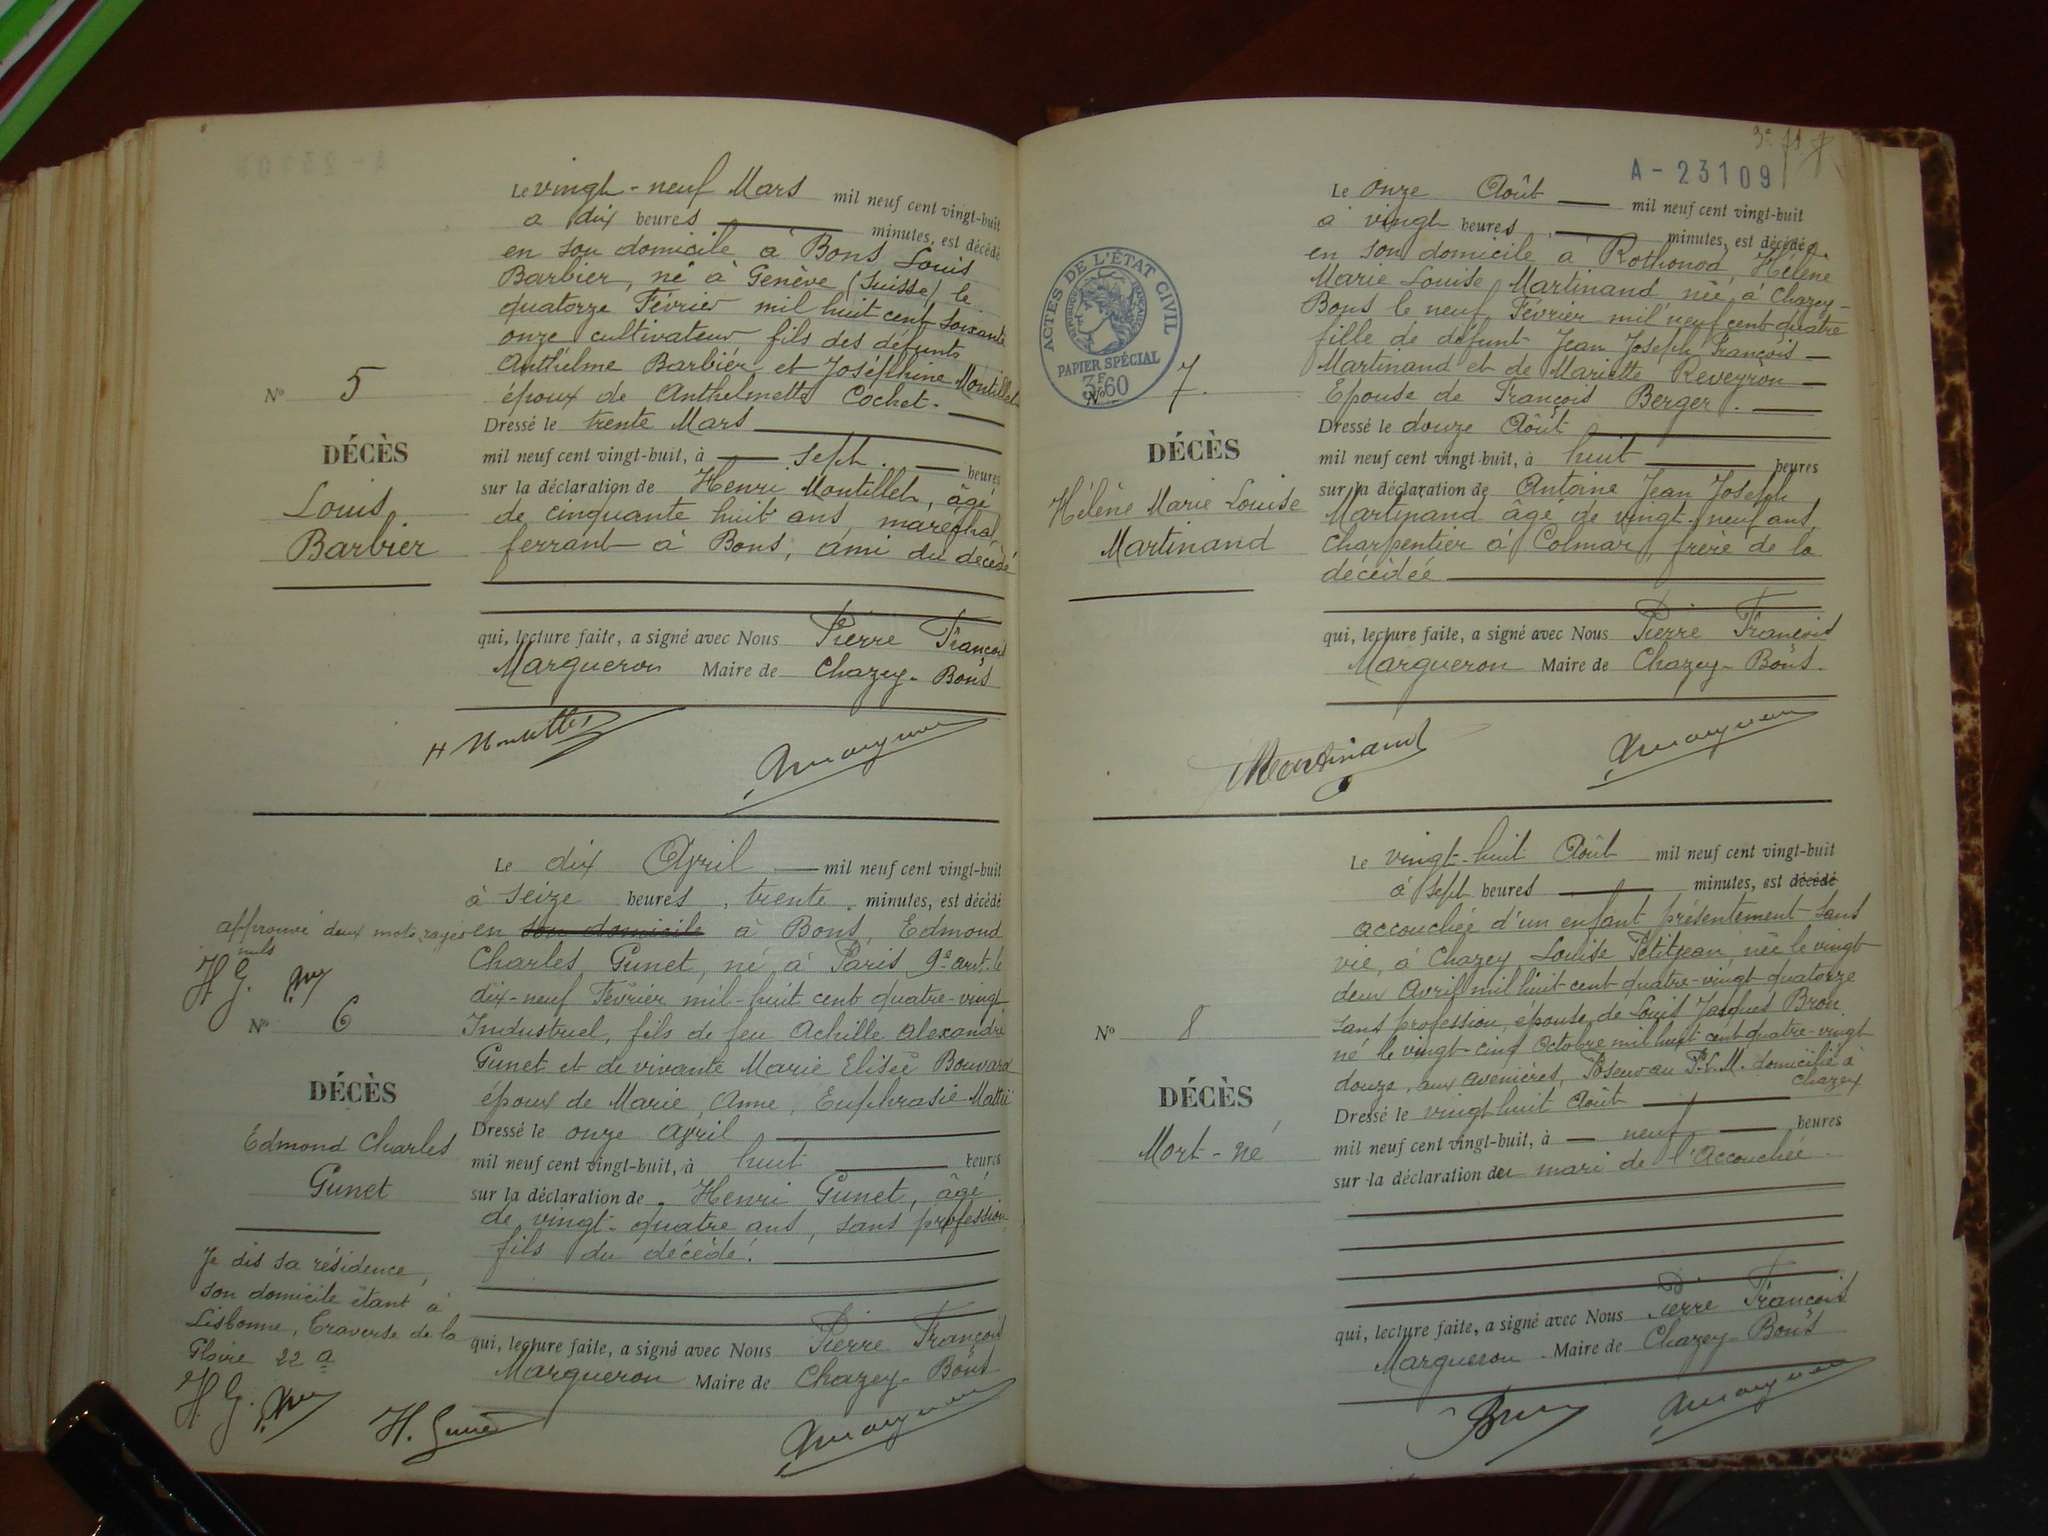 Le vingt-neuf Mars mil neuf cent vingt-huit
à dix heures minutes, est décédé
en son domicile à Bons Louis
Barbier, né à Genève (Suisse) le
quatorze Février mil huit cent soixante
onze cultivateur fils des défunts
Anthelme Barbier et Joséphine Montillet
époux de Anthelmette Cochet.
Dressé le trente Mars
mil neuf cent vingt-huit, à sept heures
sur la déclaration de Henri Montillet, âgé
de cinquante huit ans, maréchal
ferrant à Bons, ami du décédé
qui, lecture faite, a signé avec Nous Pierre François
Margueron Maire de Chazey-Bons
N° 5
DÉCÈS
Louis
Barbier
H Montillet
Le dix Avril mil neuf cent vingt-huit
à seize heures, trente minutes, est décédé
en son domicile à Bons, Edmond
Charles Gunet, né à Paris 9e arrt. le
dix-neuf Février mil-huit cent quatre-vingt
Industriel, fils de feu Achille Alexandre
Gunet et de vivante Marie Elisée Bouvard
époux de Marie, Anne, Euphrasie
Dressé le onze Avril
mil neuf cent vingt-huit, à huit heures
sur la déclaration de Henri Gunet, âgé
de vingt-quatre ans, sans profession
fils du décédé.
qui, lecture faite, a signé avec Nous Pierre François
Margueron Maire de Chazey-Bons
approuvé deux mots rayés
nuls
H. G.
N° 6
DÉCÈS
Edmond Charles
Gunet
Je dis sa résidence,
son domicile étant à
Lisbonne, Traverse de la
Gloire 22 a
H. G.
H. Gunet
A-23109
Le onze Août mil neuf cent vingt-huit
à vingt heures minutes, est décédée
en son domicile à Rothonod, Hélène
Marie Louise Martinand née à Chazey-
Bons le neuf Février mil neuf cent quatre
fille de défunt Jean Joseph François
Martinand et de Mariette Reveyron
Epouse de François Berger.
Dressé le douze Août
mil neuf cent vingt-huit, à huit heures
sur la déclaration de Antoine Jean Joseph
Martinand âgé de vingt-neuf ans,
charpentier à Colmar, frère de la
décédée
qui, lecture faite, a signé avec Nous Pierre François
Margueron Maire de Chazey-Bons.
ACTES DE L'ÉTAT CIVIL
RÉPUBLIQUE FRANÇAISE
PAPIER SPÉCIAL
3F60
N° 7
DÉCÈS
Hélène Marie Louise
Martinand
Martinand
Le vingt-huit Août mil neuf cent vingt-huit
à sept heures minutes, est décédé
accouchée d'un enfant présentement sans
vie, à Chazey, Louise Petitjean, née le vingt
deux Avril mil huit cent quatre-vingt quatorze
sans profession, épouse de Louis Jacques Bron
né le vingt-cinq Octobre mil huit cent quatre-vingt
douze, aux avenières, Poseur au P.L.M. domicilié à
Chazey
Dressé le vingt huit Août
mil neuf cent vingt-huit, à neuf heures
sur la déclaration du mari de l'accouchée
qui, lecture faite, a signé avec Nous Pierre François
Margueron Maire de Chazey-Bons
N° 8
DÉCÈS
Mort-né
Bron